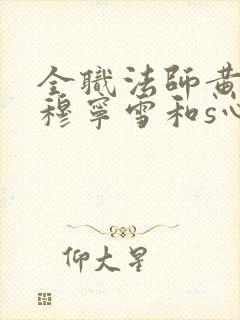 全職法師黃
穆寧雪和s心
仰大星